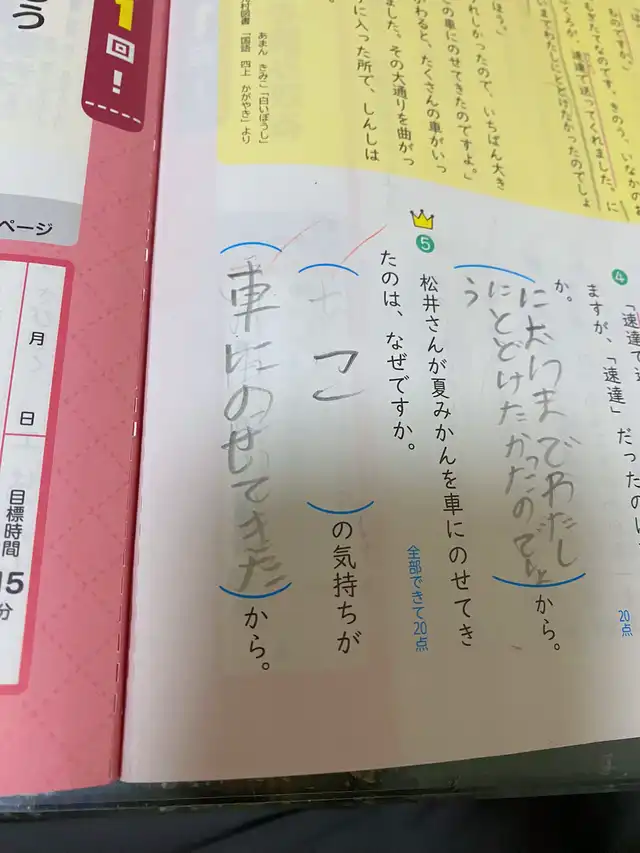 ものですか。」
速達で送ってくれました。
ほう。」
れしかったので、いちばん大き
この車にのせてきたのですよ。」
がわると、たくさんの車がいっ
ました。その大通りを曲がっ
に入った所で、しんしは
あまん きみこ「白いぼうし」
「国語 四上 かがやき」より
❹
ますが、「速達」だったの
か。
においまでわたし
にとどけたかったのでしょ
う
から。
20点
❺ 松井さんが夏みかんを車にのせてき
たのは、なぜですか。
全部できて20点
こ
の気持ちが
車にのせてきた
から。
1回!
う
ページ
月 日
目標時間
15分